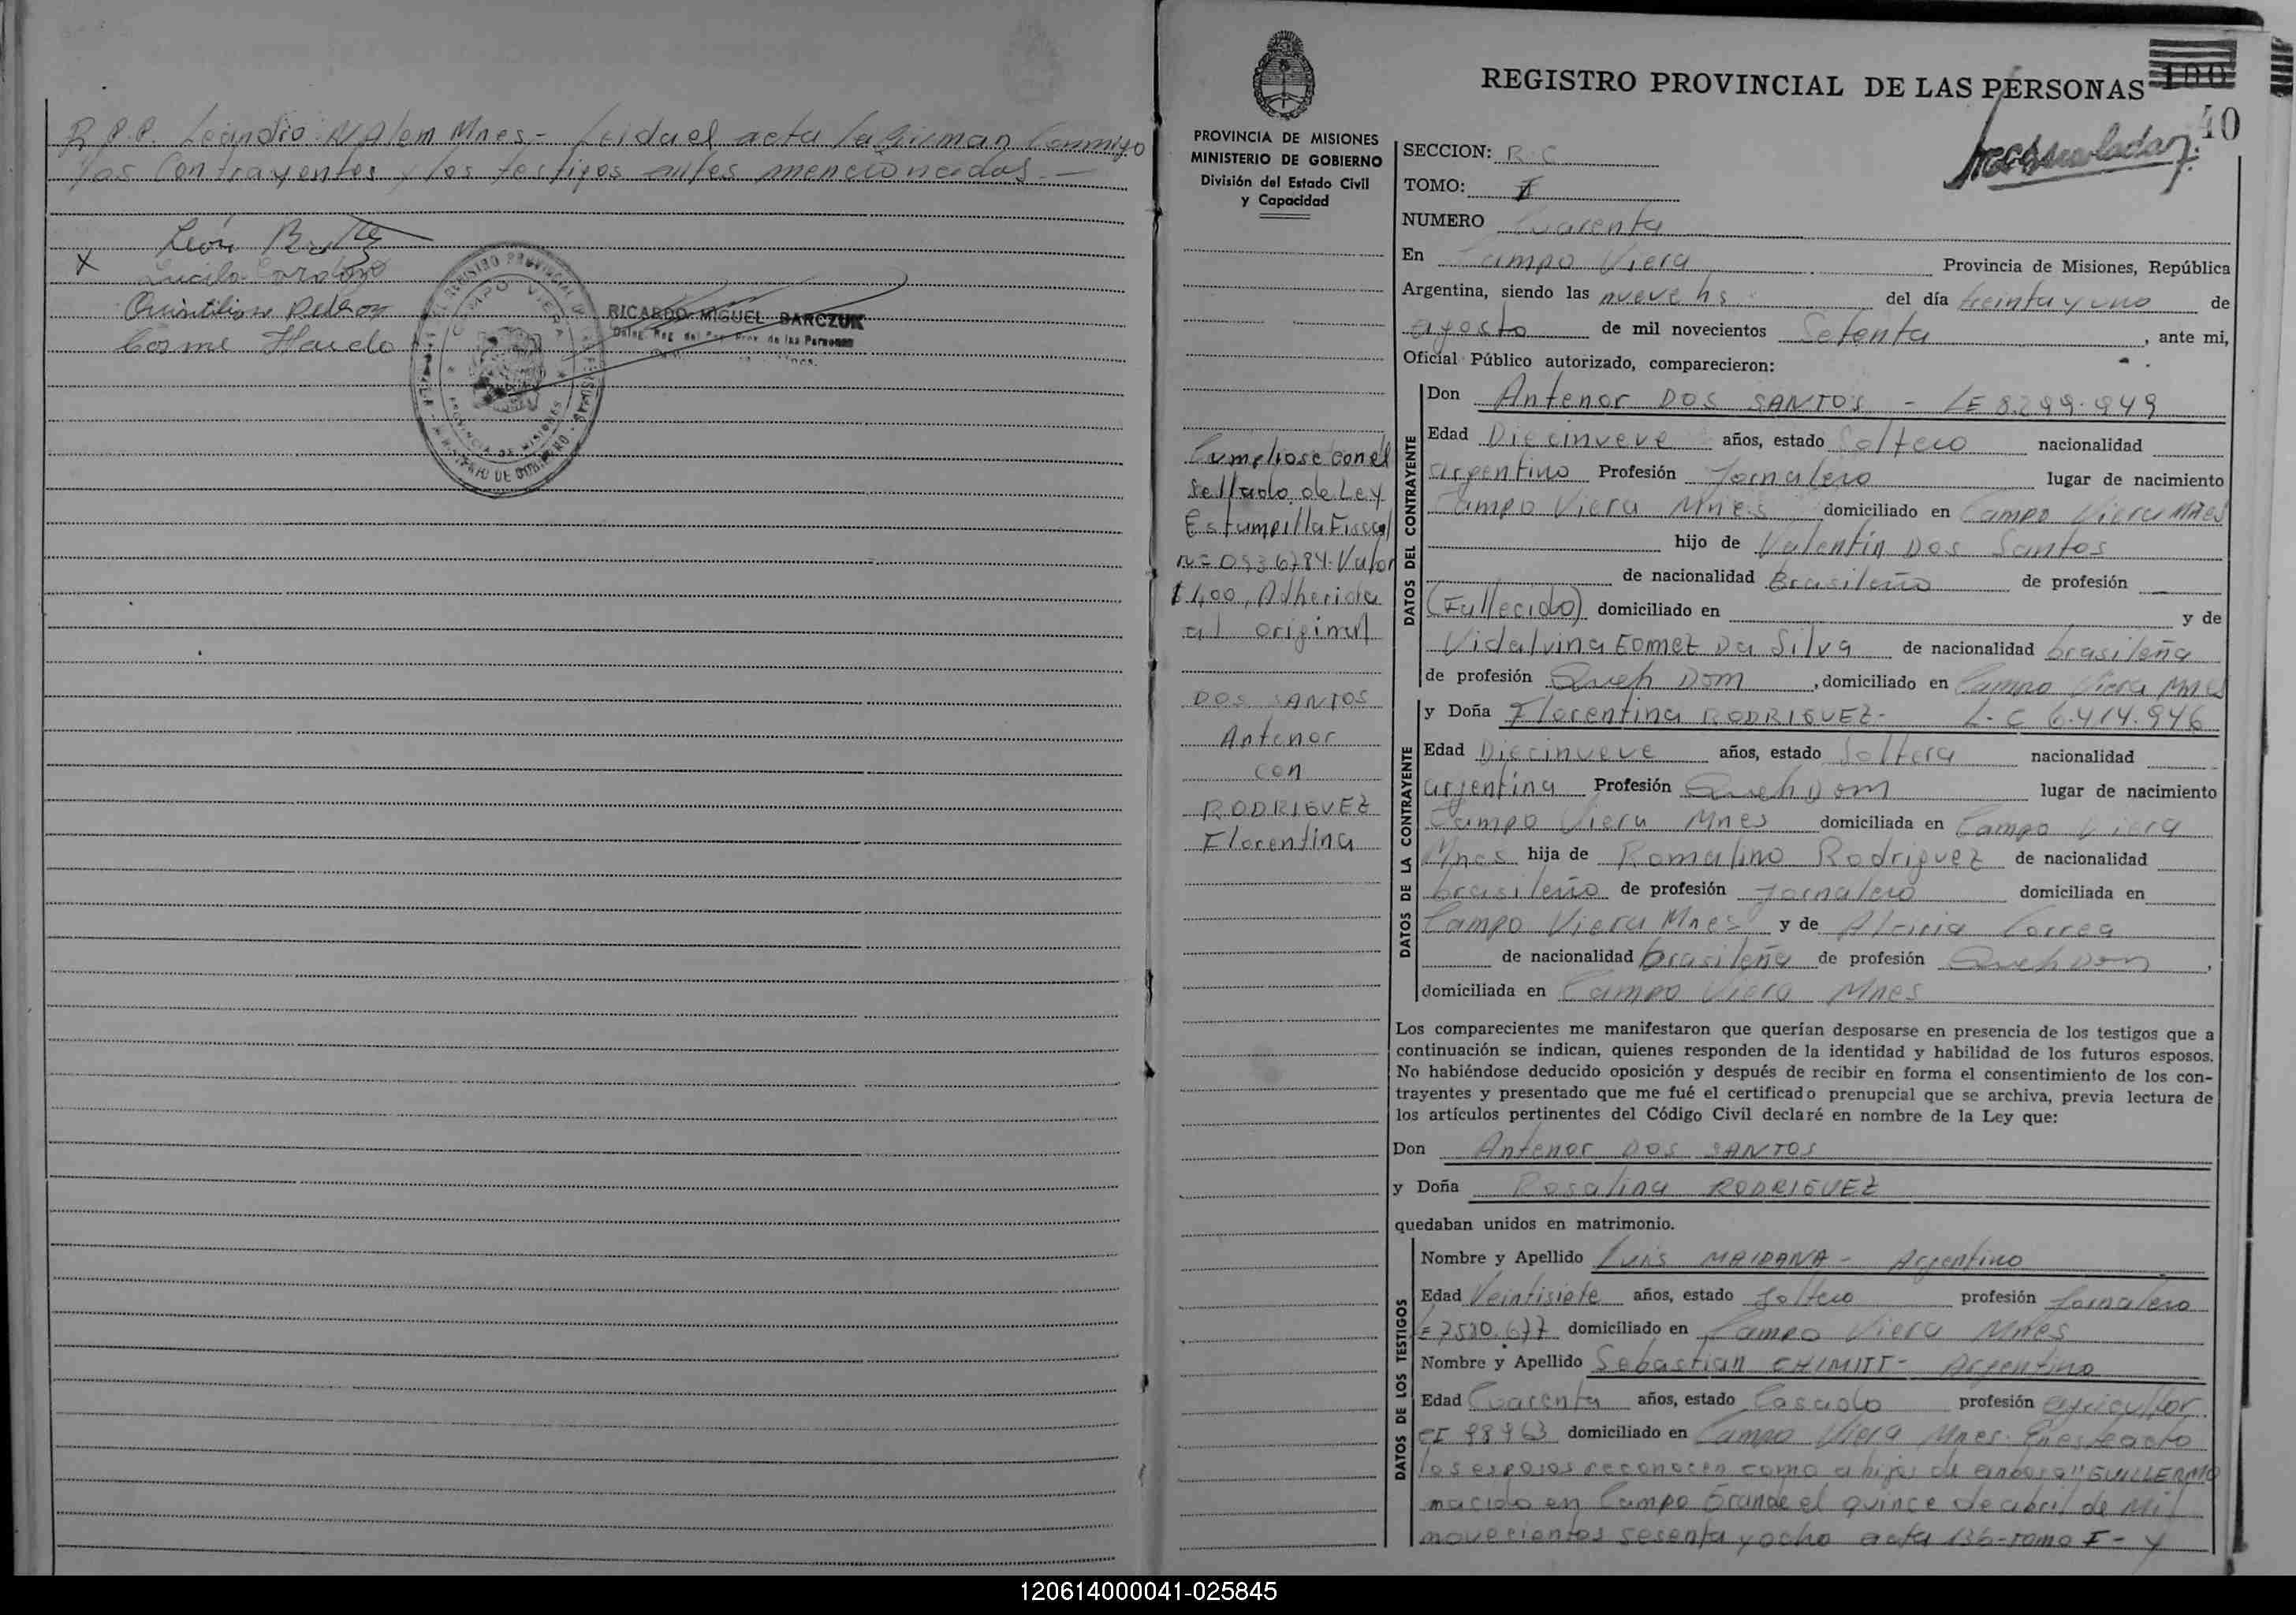 R.P.P. Leandro N Alem Mnes - Leida el acta la firman conmigo
los Contrayentes y los testigos antes mencionados. -
León
x Lucila Cardozo
Quintilian
Cosme Haudo
RICARDO MIGUEL BARCZUK
Deleg. Reg. del Reg. Prov. de las Personas
REGISTRO PROVINCIAL DE LAS PERSONAS
CAMPO VIERA
PROVINCIA DE MISIONES
MINISTERIO DE GOBIERNO
REGISTRO PROVINCIAL DE LAS PERSONAS 100
40
PROVINCIA DE MISIONES
MINISTERIO DE GOBIERNO
División del Estado Civil
y Capacidad
Cumpliose con el
Sellado de Ley
Estampilla Fiscal
nº 0936784. Valor
$ 4,00, Adherida
al original
DOS SANTOS
Antenor
con
RODRIGUEZ
Florentina
SECCION: R.C
TOMO: I
NUMERO Cuarenta
En Campo Viera Provincia de Misiones, República
Argentina, siendo las nueve hs del día treinta y uno de
agosto de mil novecientos Setenta, ante mi,
Oficial Público autorizado, comparecieron:
DATOS DEL CONTRAYENTE
Don Antenor DOS SANTOS - LE 8.299.949
Edad Diecinueve años, estado Soltero nacionalidad
argentino Profesión Jornalero lugar de nacimiento
Campo Viera Mnes domiciliado en Campo Viera Mnes
hijo de Valentin Dos Santos
de nacionalidad Brasileño de profesión
(Fallecido) domiciliado en y de
Vidalvina Gomez Da Silva de nacionalidad brasileña
de profesión Queh Dom, domiciliado en Campo Viera Mnes
DATOS DE LA CONTRAYENTE
y Doña Florentina RODRIGUEZ- L.C 6.414.946
Edad Diecinueve años, estado Soltera nacionalidad
argentina Profesión Queh Dom lugar de nacimiento
Campo Viera Mnes domiciliada en Campo Viera
Mnes hija de Romalino Rodriguez de nacionalidad
brasileño de profesión Jornalero domiciliada en
Campo Viera Mnes y de Alciria Correa
de nacionalidad brasileña de profesión Queh Dom,
domiciliada en Campo Viera Mnes
Los comparecientes me manifestaron que querían desposarse en presencia de los testigos que a
continuación se indican, quienes responden de la identidad y habilidad de los futuros esposos.
No habiéndose deducido oposición y después de recibir en forma el consentimiento de los con-
trayentes y presentado que me fué el certificado prenupcial que se archiva, previa lectura de
los artículos pertinentes del Código Civil declaré en nombre de la Ley que:
Don Antenor DOS SANTOS
y Doña Rosalina RODRIGUEZ
quedaban unidos en matrimonio.
DATOS DE LOS TESTIGOS
Nombre y Apellido Luis MAIDANA - Argentino
Edad Veintisiete años, estado Soltero profesión Jornalero
LE 7580.677 domiciliado en Campo Viera Mnes
Nombre y Apellido Sebastian CHIMITT - Argentino
Edad Cuarenta años, estado Casado profesión agricultor
CI 98963 domiciliado en Campo Viera Mnes. En este acto
los esposos reconocen como a hijos de ambos a "GUILLERMO
nacido en Campo Grande el quince de abril de Mil
novecientos sesenta y ocho acta 136 - tomo I - y
120614000041-025845